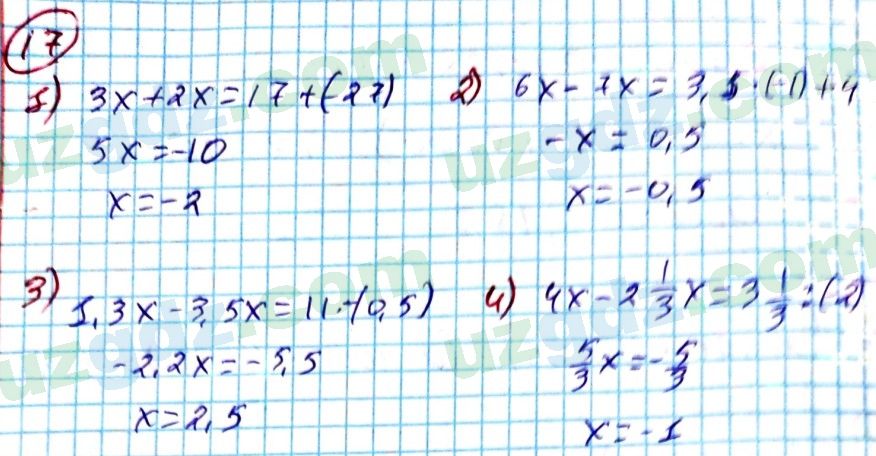 17
1) 3x+2x=17+(-27)
5x=-10
x=-2
2) 6x-7x=3,5·(-1)+4
-x=0,5
x=-0,5
3) 1,3x-3,5x=11·(-0,5)
-2,2x=-5,5
x=2,5
4) 4x-2 1/3x=3 1/3:(-2)
5/3x=-5/3
x=-1
uzgdz.com
uzgdz.com
uzgdz.com
uzgdz.com